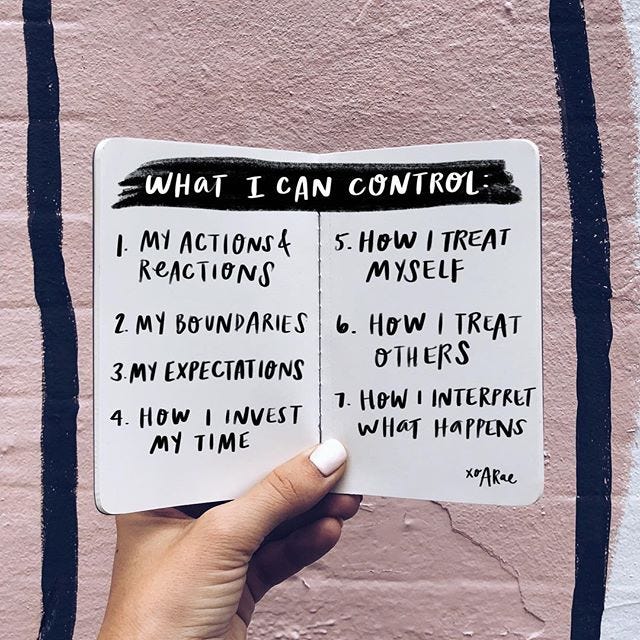 WHAT I CAN CONTROL:
1. MY ACTIONS &
REACTIONS
2. MY BOUNDARIES
3. MY EXPECTATIONS
4. HOW I INVEST
MY TIME
5. HOW I TREAT
MYSELF
6. HOW I TREAT
OTHERS
7. HOW I INTERPRET
WHAT HAPPENS
xo ARae